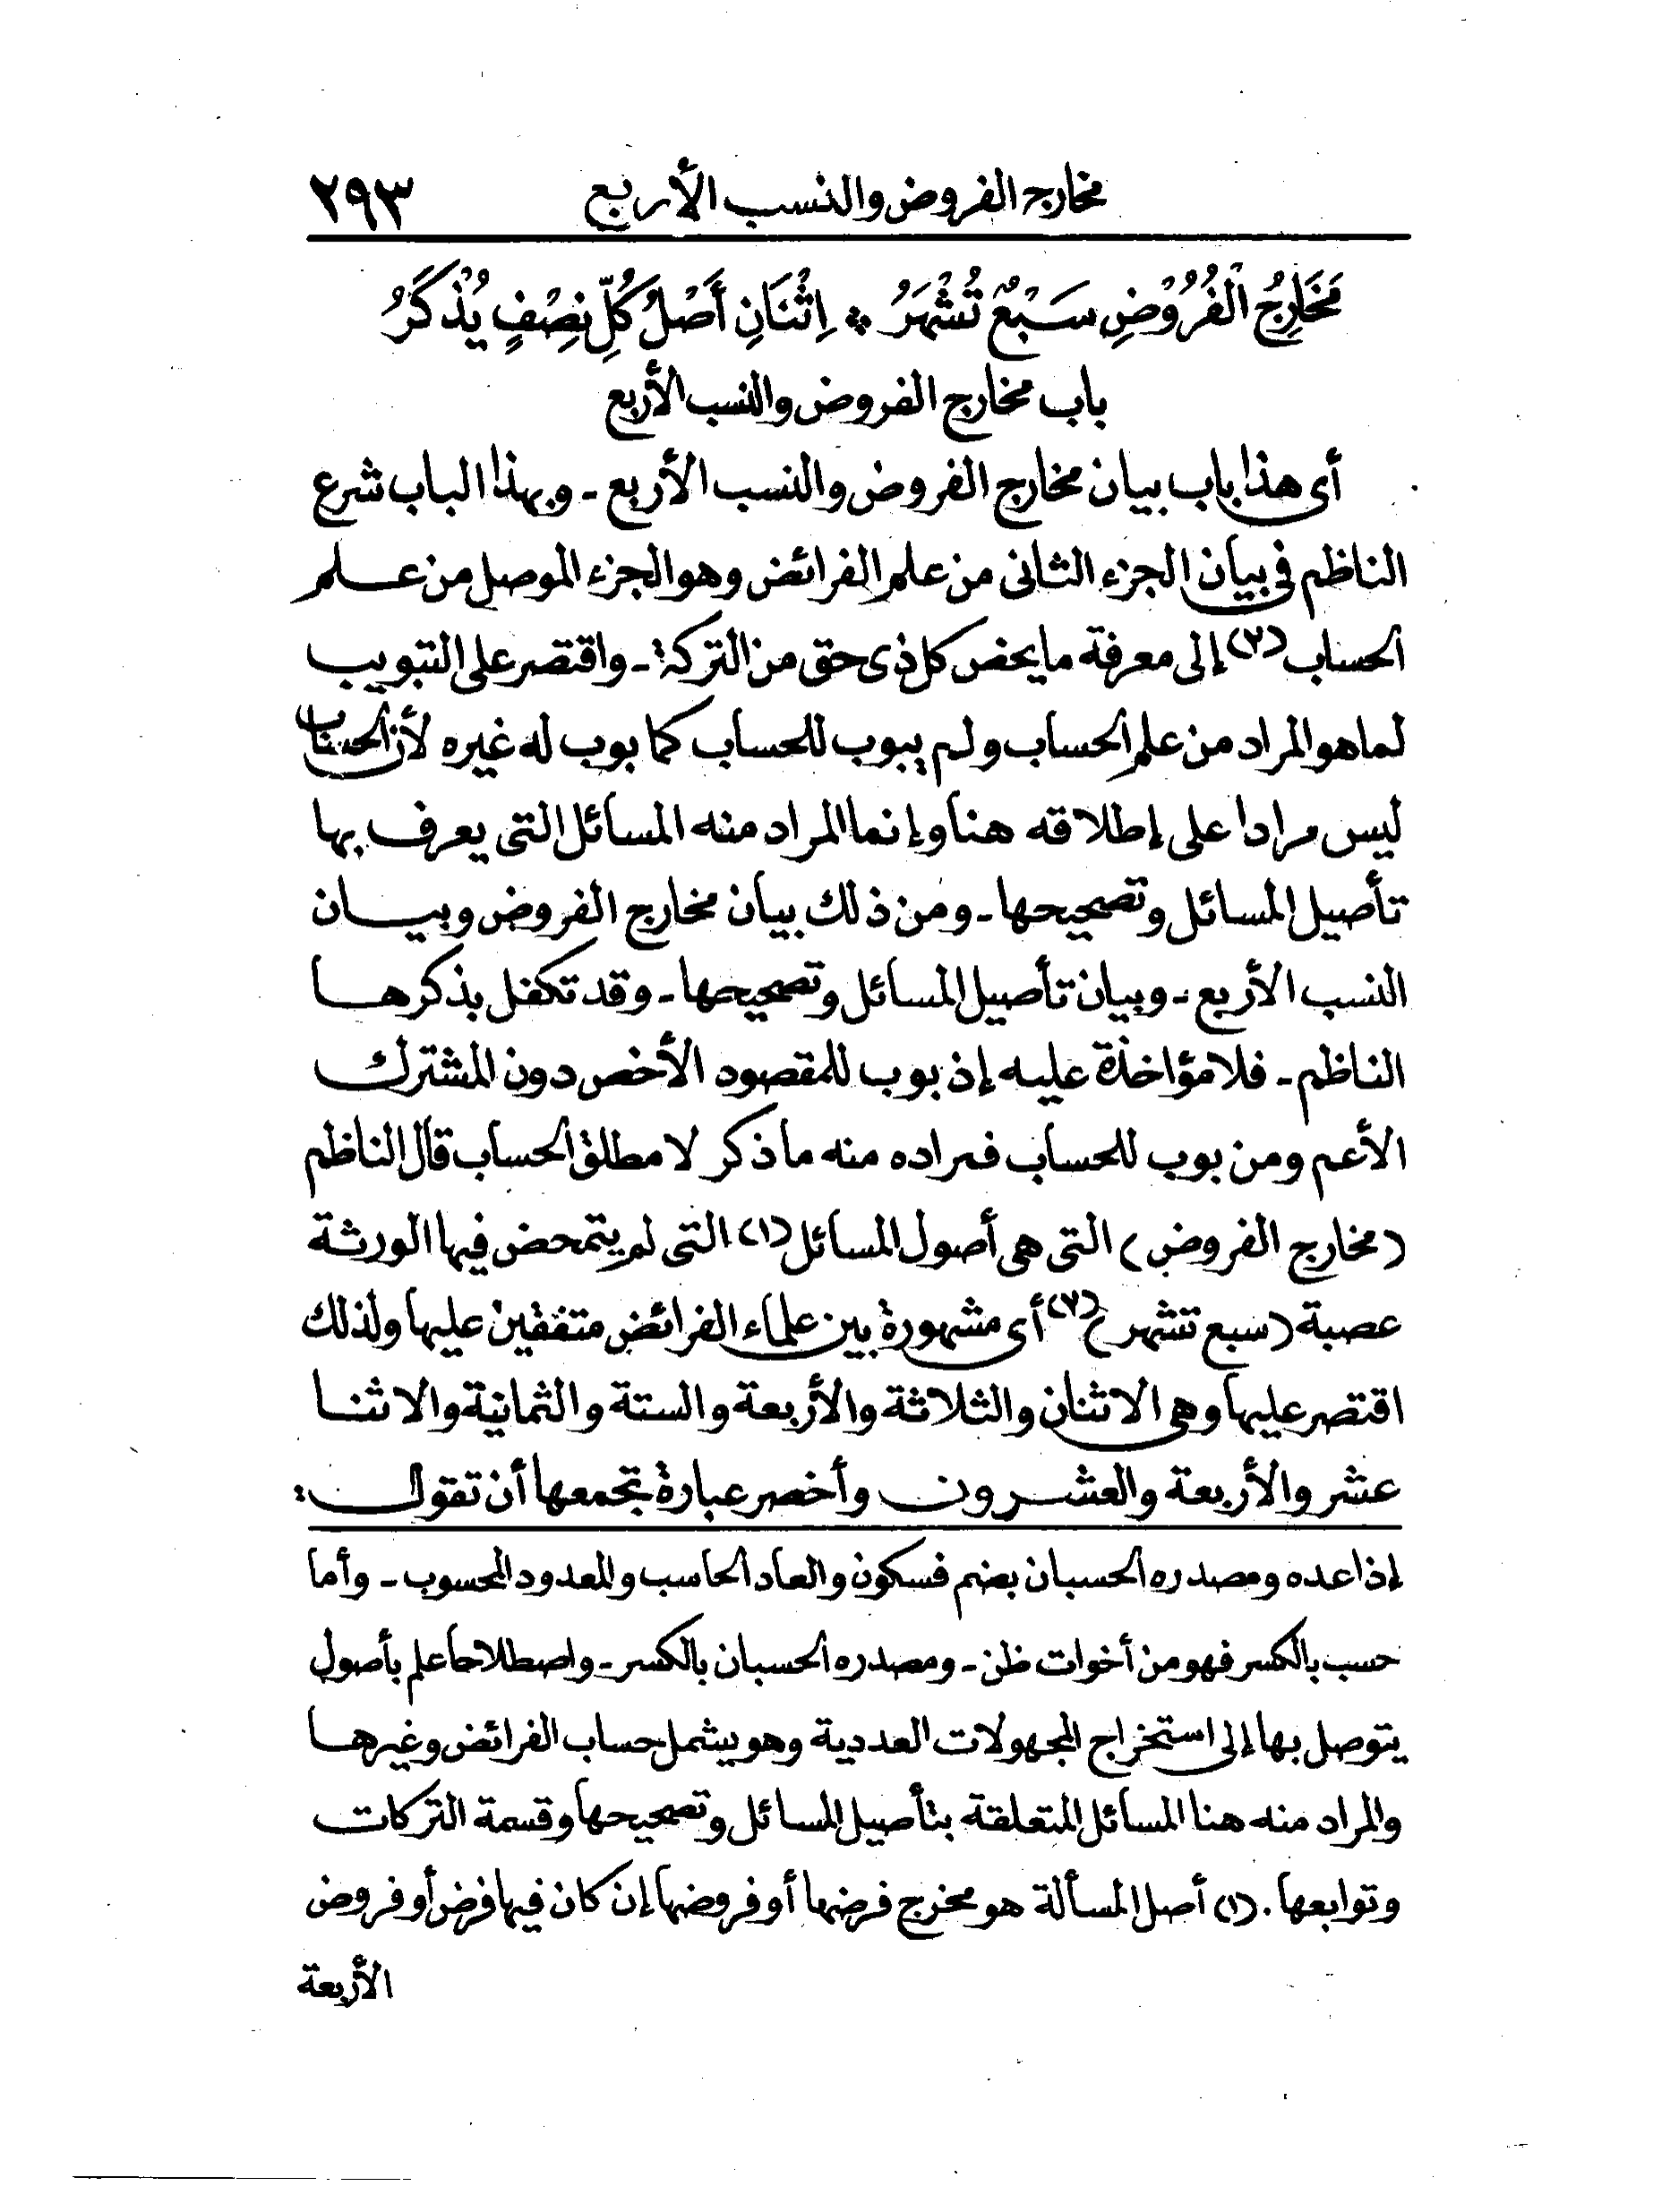 مخارج الفروض والنسب الأربع ٢٩٣
مَخَارِجُ الْفُرُوْضِ سَبْعٌ تُشْهَرُ * اِثْنَانِ أَصْلُ كُلِّ نِصْفٍ يُذْكَرُ
باب مخارج الفروض والنسب الأربع
أى هذا باب بيان مخارج الفروض والنسب الأربع ـ وبهذا الباب شرع
الناظم فى بيان الجزء الثانى من علم الفرائض وهو الجزء الموصل من علم
الحساب (٢) إلى معرفة ما يخص كل ذى حق من التركة ـ واقتصر على التبويب
لما هو المراد من علم الحساب ولم يبوب للحساب كما بوب له غيره لأن الحساب
ليس مرادا على إطلاقه هنا وإنما المراد منه المسائل التى يعرف بها
تأصيل المسائل وتصحيحها ـ ومن ذلك بيان مخارج الفروض وبيان
النسب الأربع ـ وبيان تأصيل المسائل وتصحيحها ـ وقد تكفل بذكرها
الناظم ـ فلا مؤاخذة عليه إذ بوب للمقصود الأخص دون المشترك
الأعم ومن بوب للحساب فمراده منه ما ذكر لا مطلق الحساب قال الناظم
(مخارج الفروض) التى هى أصول المسائل (١) التى لم يتمحض فيها الورثة
عصبة (سبع تشهر) (٧) أى مشهورة بين علماء الفرائض متفقين عليها ولذلك
اقتصر عليها وهى الاثنان والثلاثة والأربعة والستة والثمانية والاثنا
عشر والأربعة والعشرون وأخصر عبارة تجمعها أن تقول :
إذا عده ومصدره الحسبان بضم فسكون والعاد الحاسب والمعدود المحسوب ـ وأما
حسب بالكسر فهو من أخوات ظن ـ ومصدره الحسبان بالكسر ـ واصطلاحا علم بأصول
يتوصل بها إلى استخراج المجهولات العددية وهو يشمل حساب الفرائض وغيرها
والمراد منه هنا المسائل المتعلقة بتأصيل المسائل وتصحيحها وقسمة التركات
وتوابعها . (١) أصل المسألة هو مخرج فرضها أو فروضها إن كان فيها فرض أو فروض
الأربعة